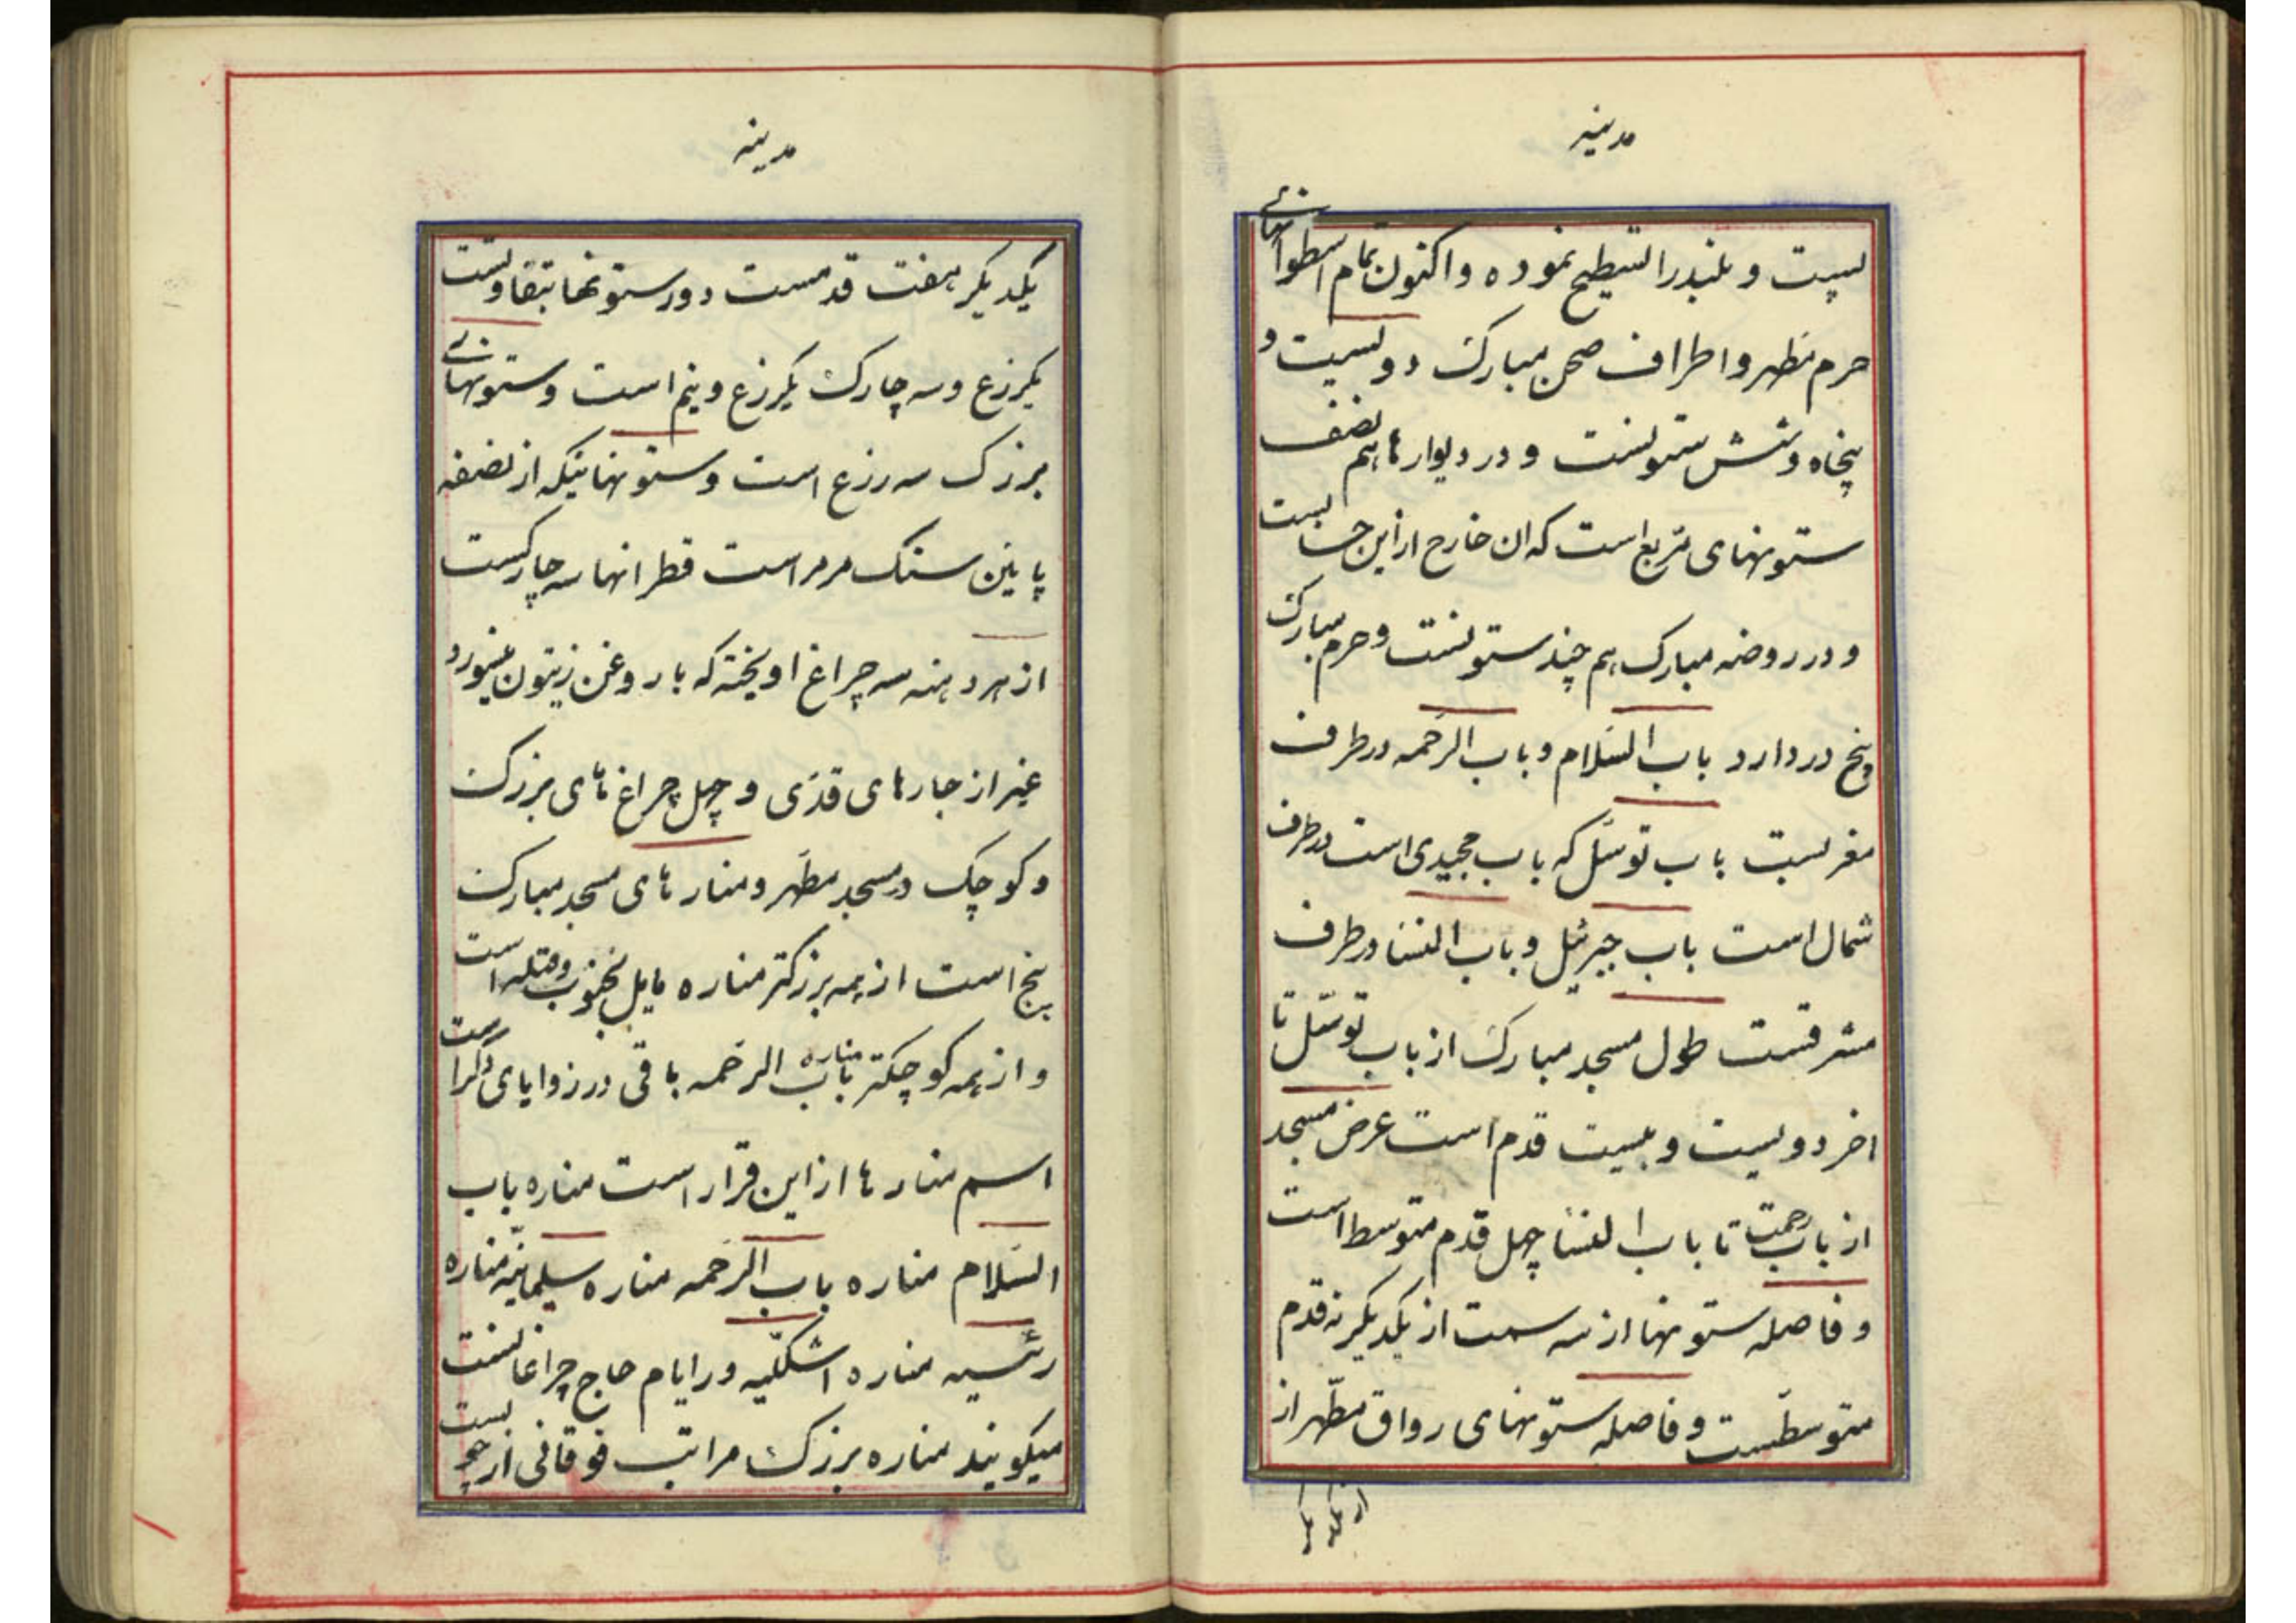 مدینه
پست و بلند را تسطیح نموده و اکنون تمام اسطوانهای
حرم مطهر و اطراف صحن مبارک دویست و
پنجاه و شش ستونست و در دیوارها هم نصف
ستونهای مربع است که ان خارج از این حسابست
و در روضه مبارک هم چند ستونست و حرم مبارک
پنج در دارد باب السلام و باب الرحمه در طرف
مغربست باب توسل که باب مجیدی است در طرف
شمال است باب جبرئیل و باب النسا در طرف
مشرقست طول مسجد مبارک از باب توسل تا
اخر دویست و بیست قدم است عرض مسجد
از باب رحمت تا باب النسا چهل قدم متوسط است
و فاصله ستونها از سه سمت از یکدیگر نه قدم
متوسطست و فاصله ستونهای رواق مطهر از
از یکدیگر
مدینه
یکدیگر هفت قدمست دور ستونها بتفاوتست
یکزرع و سه چارک یکزرع و نیم است و ستونهای
بزرک سه زرع است و ستونهائیکه از نصفه
پایین سنک مرمر است قطر انها سه چارکست
از هر دهنه سه چراغ اویخته که با روغن زیتون میسوزد
غیر از جارهای قدی و چهل چراغ های بزرک
و کوچک در مسجد مطهر و منارهای مسجد مبارک
پنج است از همه بزرکتر مناره مایل بجنوب و قبله است
و از همه کوچکتر مناره باب الرحمه باقی در زوایای دیگر است
اسم منارها از این قرار است مناره باب
السلام مناره باب الرحمه مناره سلیمانیه مناره
رئسیه مناره اشکلیه و در ایام حاج چراغانست
میکویند مناره بزرک مراتب فوقانی از چوبست